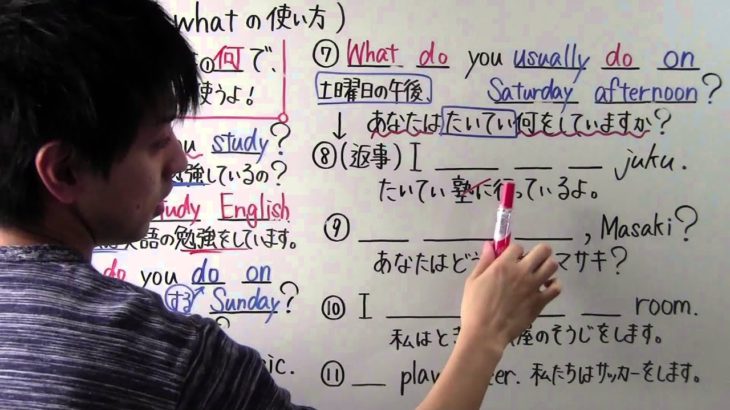 whatの使い方)
何で、
使うよ!
study?
勉強しているの?
study English
英語の勉強をしています。
do you do on
する Sunday?
⑦ What do you usually do on
土曜日の午後、 Saturday afternoon?
↓ あなたはたいてい何をしていますか?
⑧(返事) I ____ ___ ___ juku.
たいてい塾に行っているよ。
⑨ ____ ____ ____, Masaki?
あなたはど マサキ?
⑩ I ____ ____ ___ room.
私はとき 屋のそうじをします。
⑪ ___ play 私たちはサッカーをします。